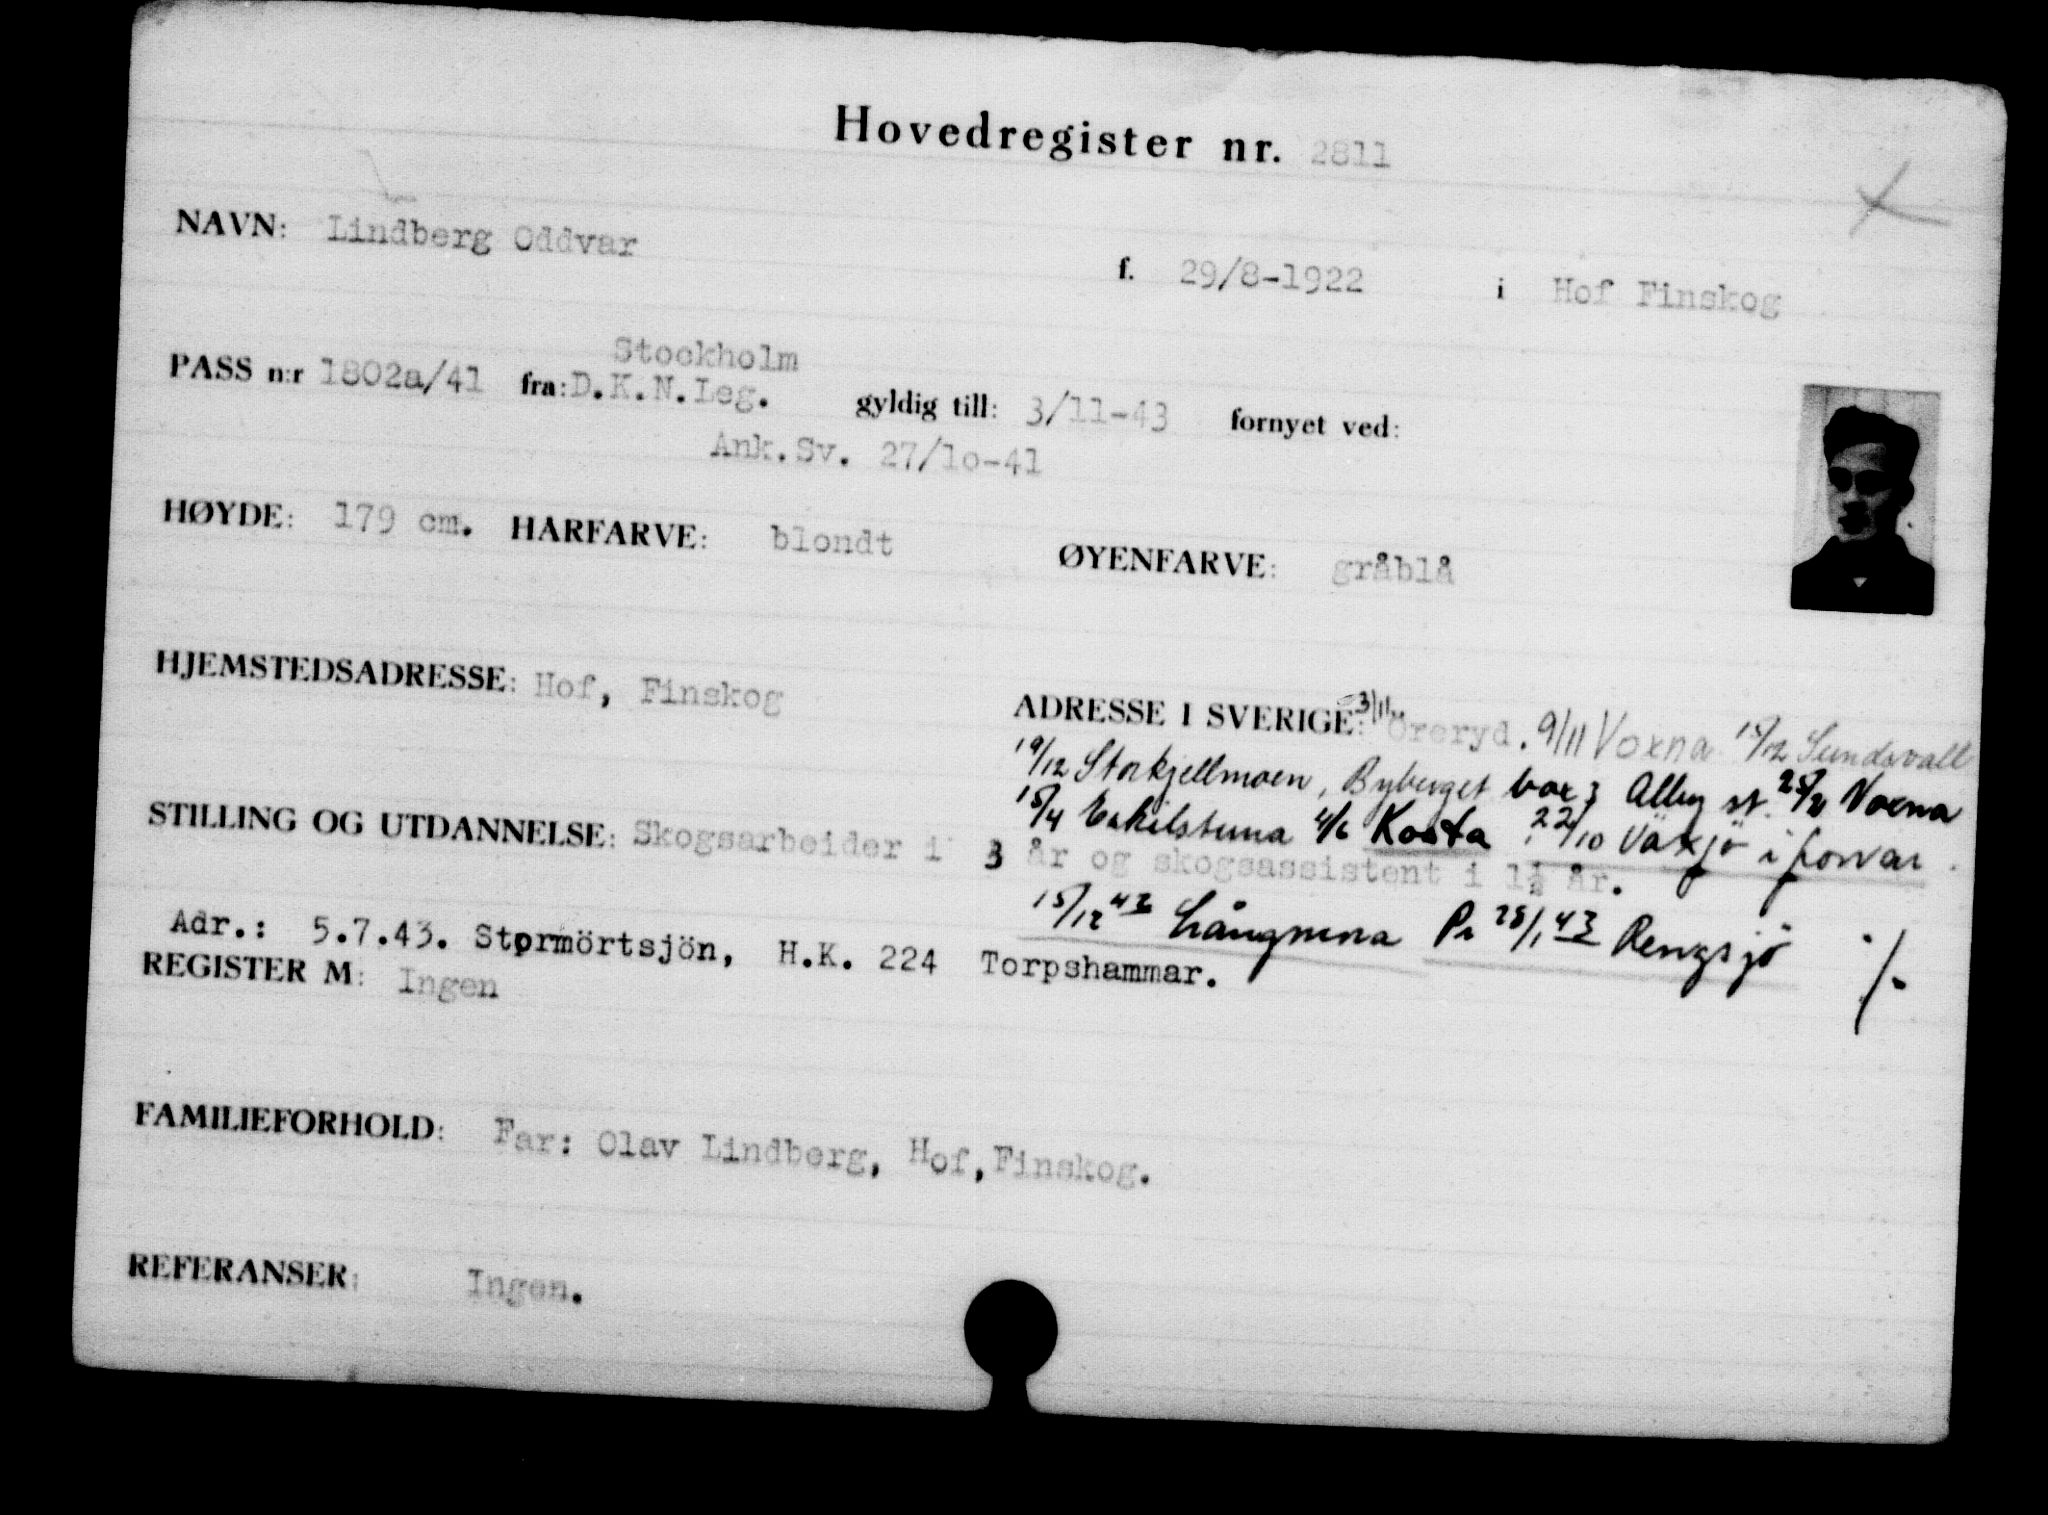 Hovedregister nr. 2811
NAVN: Lindberg Oddvar f. 29/8-1922 i Hof Finskog
Stockholm
PASS n:r 1802a/41 fra: D.K.N.Leg. gyldig till: 3/11-43 fornyet ved:
Ank.Sv. 27/10-41
HØYDE: 179 cm. HÅRFARVE: blondt ØYENFARVE: gråblå
HJEMSTEDSADRESSE: Hof, Finskog
ADRESSE I SVERIGE: 3/11 Öreryd. 9/11 Voxna 15/12 Sundsvall
19/12 Storkjellmoen, Byberget box 3 Alby st. Voxna
15/4 Eskilstuna 4/6 Kosta 22/10 Växjö i forvar
STILLING OG UTDANNELSE: Skogsarbeider i 3 år og skogsassistent i 1½ år.
15/12 42 Långnena Pr 28/1 43 Rengsjö ./.
Adr.: 5.7.43. Stormörtsjön, H.K. 224 Torpshammar.
REGISTER M: Ingen
FAMILIEFORHOLD: Far: Olav Lindberg, Hof, Finskog.
REFERANSER: Ingen.